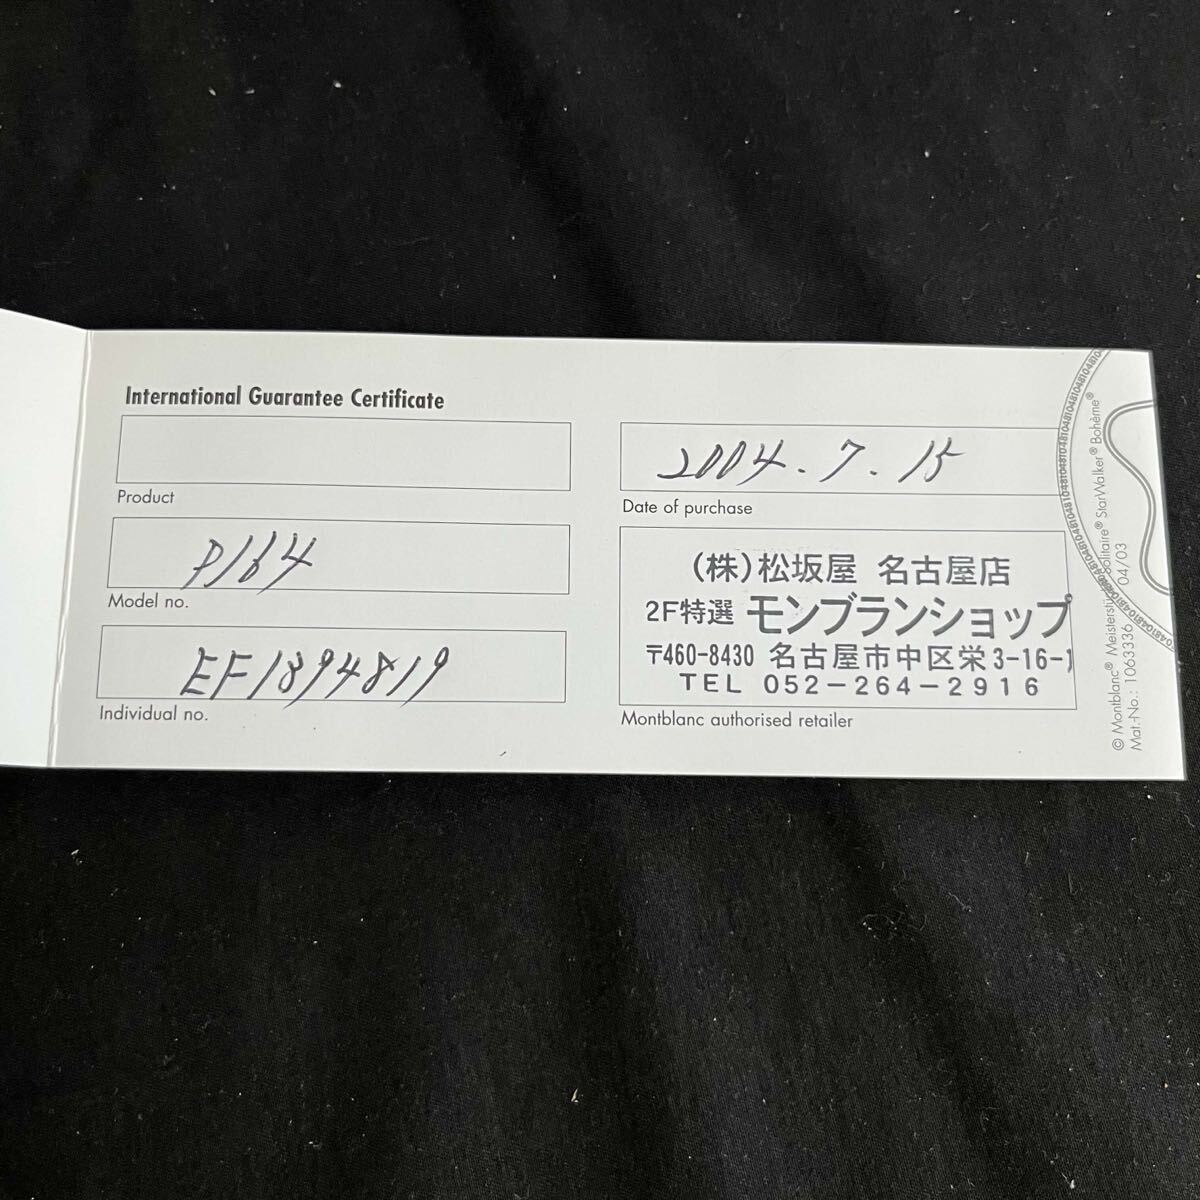 International Guarantee Certificate
Product
P164
Model no.
EF1894819
Individual no.
2004.7.15
Date of purchase
(株)松坂屋 名古屋店
2F特選 モンブランショップ
〒460-8430 名古屋市中区栄3-16-1
TEL 052-264-2916
Montblanc authorised retailer
© Montblanc® Meisterstück® Solitaire® StarWalker® Bohème®
Mat.-No.: 1063336 04/03